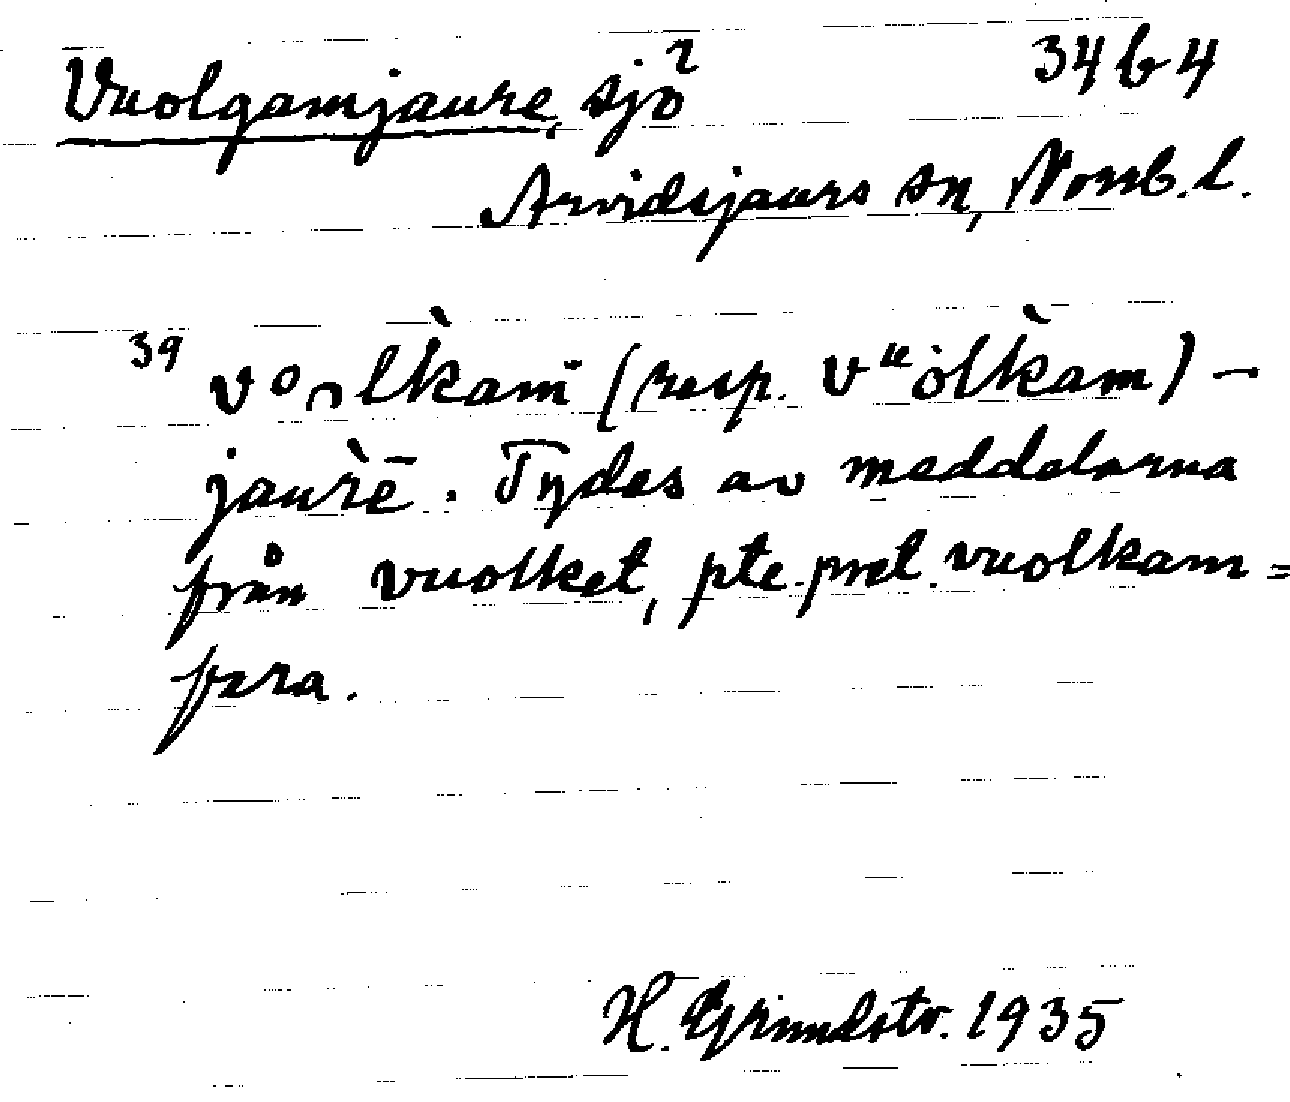 Vuolgamjaure, sjö² 34b4
Arvidsjaurs sn, Norrb. l.
39 vo̭lkam (resp. vᵘòlkam) –
jaurē. Tydes av meddelarna
från vuolket, ptc. pret. vuolkam =
fara.
H. Grundstr. 1935